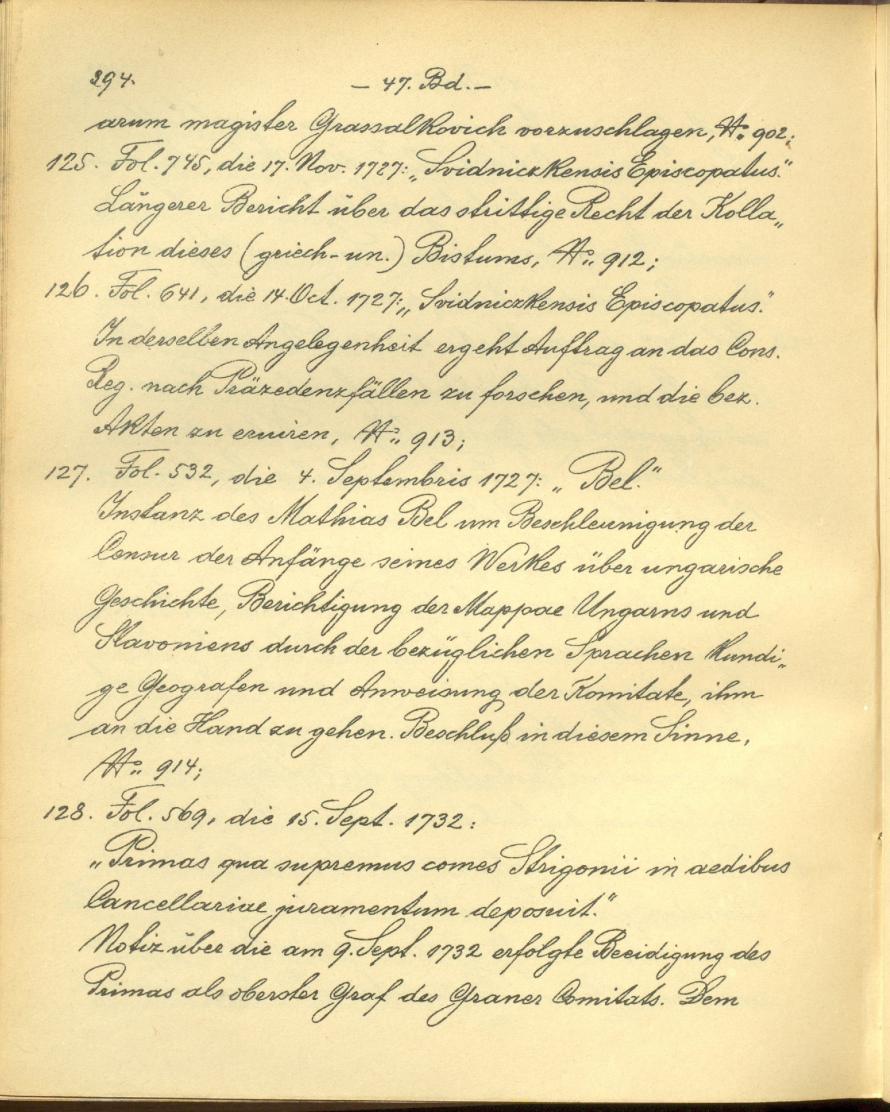 394.
— 47. Bd. —
arum magister Grassalkovich vorzuschlagen, A.: 902;
125. Fol. 745, die 17. Nov. 1727: „Svidniczkensis Episcopatus."
Längerer Bericht über das strittige Recht der Kolla„
tion dieses (griech-un.) Bistums, A.: 912;
126. Fol. 641, die 14. Oct. 1727: „Svidniczkensis Episcopatus."
In derselben Angelegenheit ergeht Auftrag an das Cons.
Reg. nach Präzedenzfällen zu forschen, und die bez.
Akten zu eruiren, A.: 913;
127. Fol. 532, die 4. Septembris 1727: „Bel."
Instanz des Mathias Bel um Beschleunigung der
Censur der Anfänge seines Werkes über ungarische
Geschichte, Berichtigung der Mappae Ungarns und
Slavoniens durch der bezüglichen Sprachen kundi„
ge Geografen und Anweisung der Komitate, ihm
an die Hand zu gehen. Beschluß in diesem Sinne,
A.: 914;
128. Fol. 569, die 15. Sept. 1732:
„Primas qua supremus comes Strigonii in aedibus
Cancellariae juramentum deposuit."
Notiz über die am 9. Sept. 1732 erfolgte Beeidigung des
Primas als oberster Graf des Graner Comitats. Dem